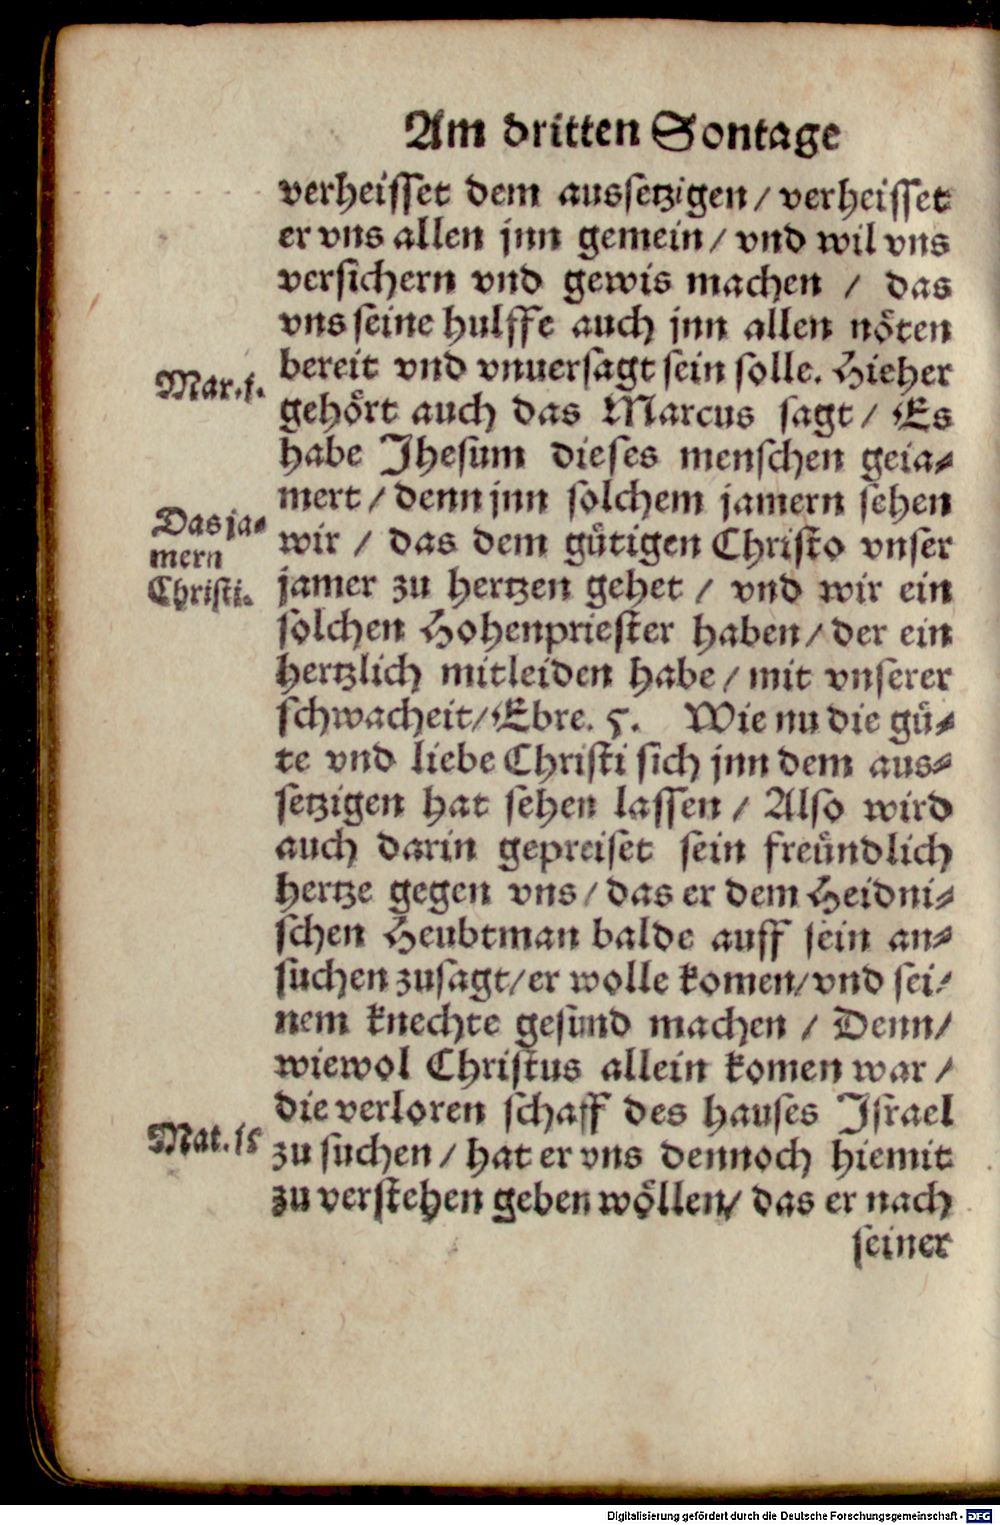 Am dritten Sontage
verheisset dem aussetzigen / verheisset
er vns allen jnn gemein / vnd wil vns
versichern vnd gewis machen / das
vns seine hulffe auch jnn allen nöten
bereit vnd vnuersagt sein solle. Hieher
Mar.1.
gehört auch das Marcus sagt / Es
habe Jhesum dieses menschen geia⸗
mert / denn jnn solchem jamern sehen
Das ja⸗
mern
Christi.
wir / das dem gütigen Christo vnser
jamer zu hertzen gehet / vnd wir ein
solchen Hohenpriester haben / der ein
hertzlich mitleiden habe / mit vnserer
schwacheit / Ebre. 5. Wie nu die gü⸗
te vnd liebe Christi sich jnn dem aus⸗
setzigen hat sehen lassen / Also wird
auch darin gepreiset sein freündlich
hertze gegen vns / das er dem Heidni⸗
schen Heubtman balde auff sein an⸗
suchen zusagt / er wolle komen / vnd sei⸗
nem knechte gesund machen / Denn /
wiewol Christus allein komen war /
die verloren schaff des hauses Israel
Mat.15
zu suchen / hat er vns dennoch hiemit
zu verstehen geben wöllen / das er nach
seiner
Digitalisierung gefördert durch die Deutsche Forschungsgemeinschaft - DFG